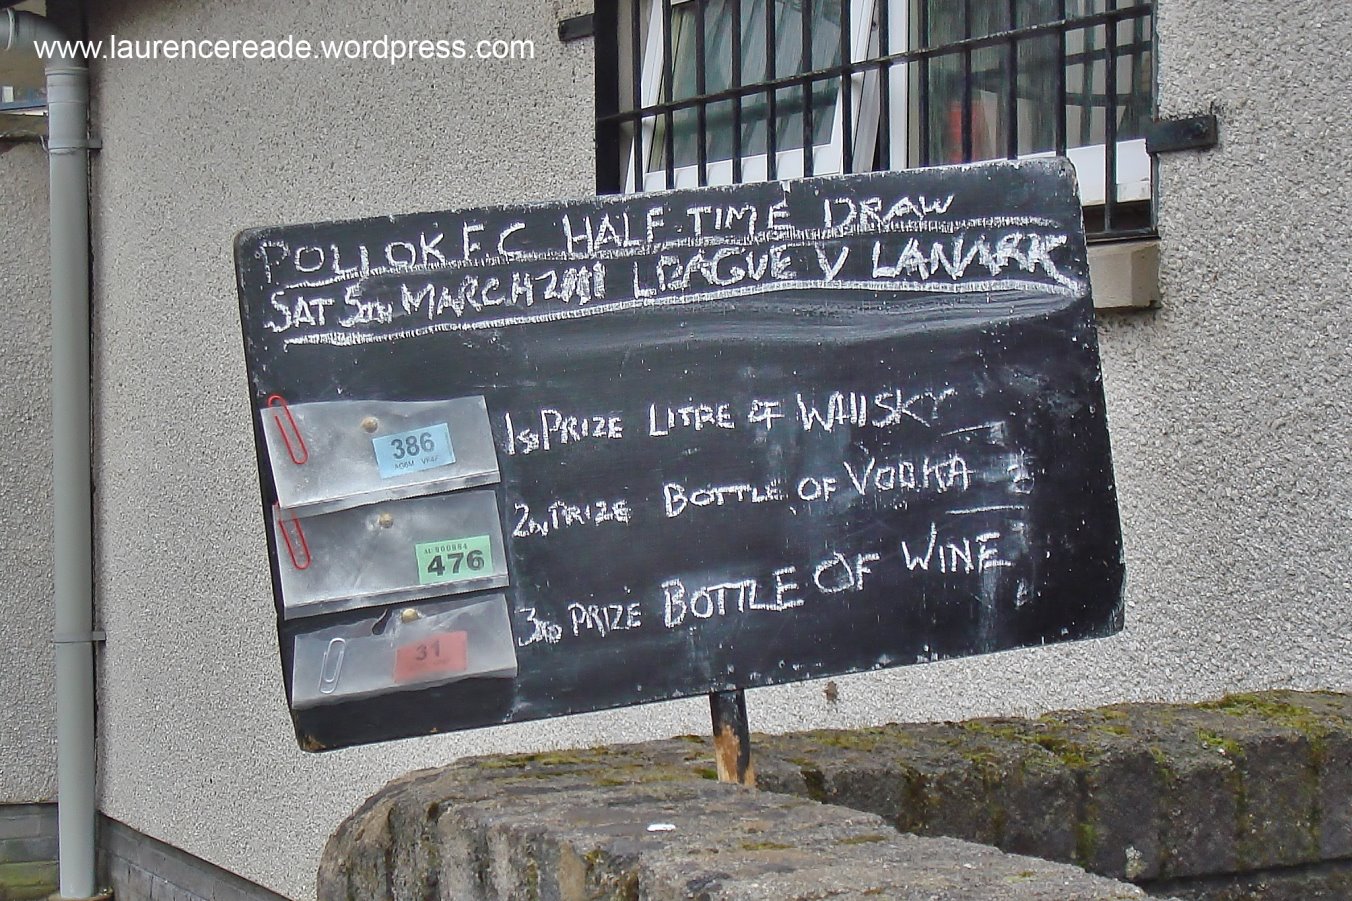 www.laurencereade.wordpress.com
POLLOK F.C HALF TIME DRAW
SAT 5TH MARCH 2011 LEAGUE V LANARK
386 1st PRIZE LITRE OF WHISKY
476 2nd PRIZE BOTTLE OF VODKA
31 3RD PRIZE BOTTLE OF WINE